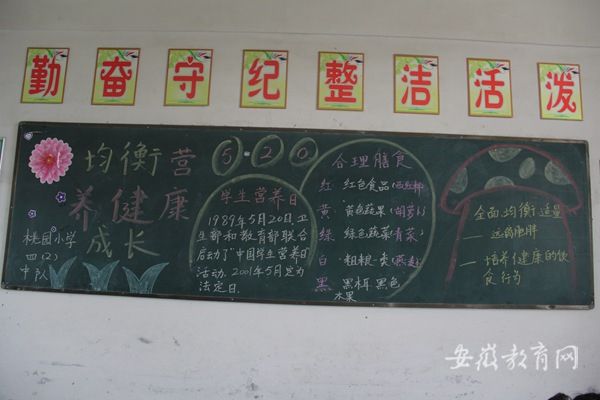 勤奋守纪整洁活泼
均衡营
养健康
成长
桃园小学
四(2)
中队
5·20
学生营养日
1989年5月20日,卫
生部和教育部联合
启动了"中国学生营养日"
活动.2001年5月定为
法定日.
合理膳食
红 红色食品(西红柿)
黄 黄色蔬果(胡萝卜)
绿 绿色蔬菜(青菜)
白 粗粮类(燕麦)
黑 黑木耳 黑色
水果
全面 均衡 适量
远离肥胖
培养健康的饮
食行为
安徽教育网